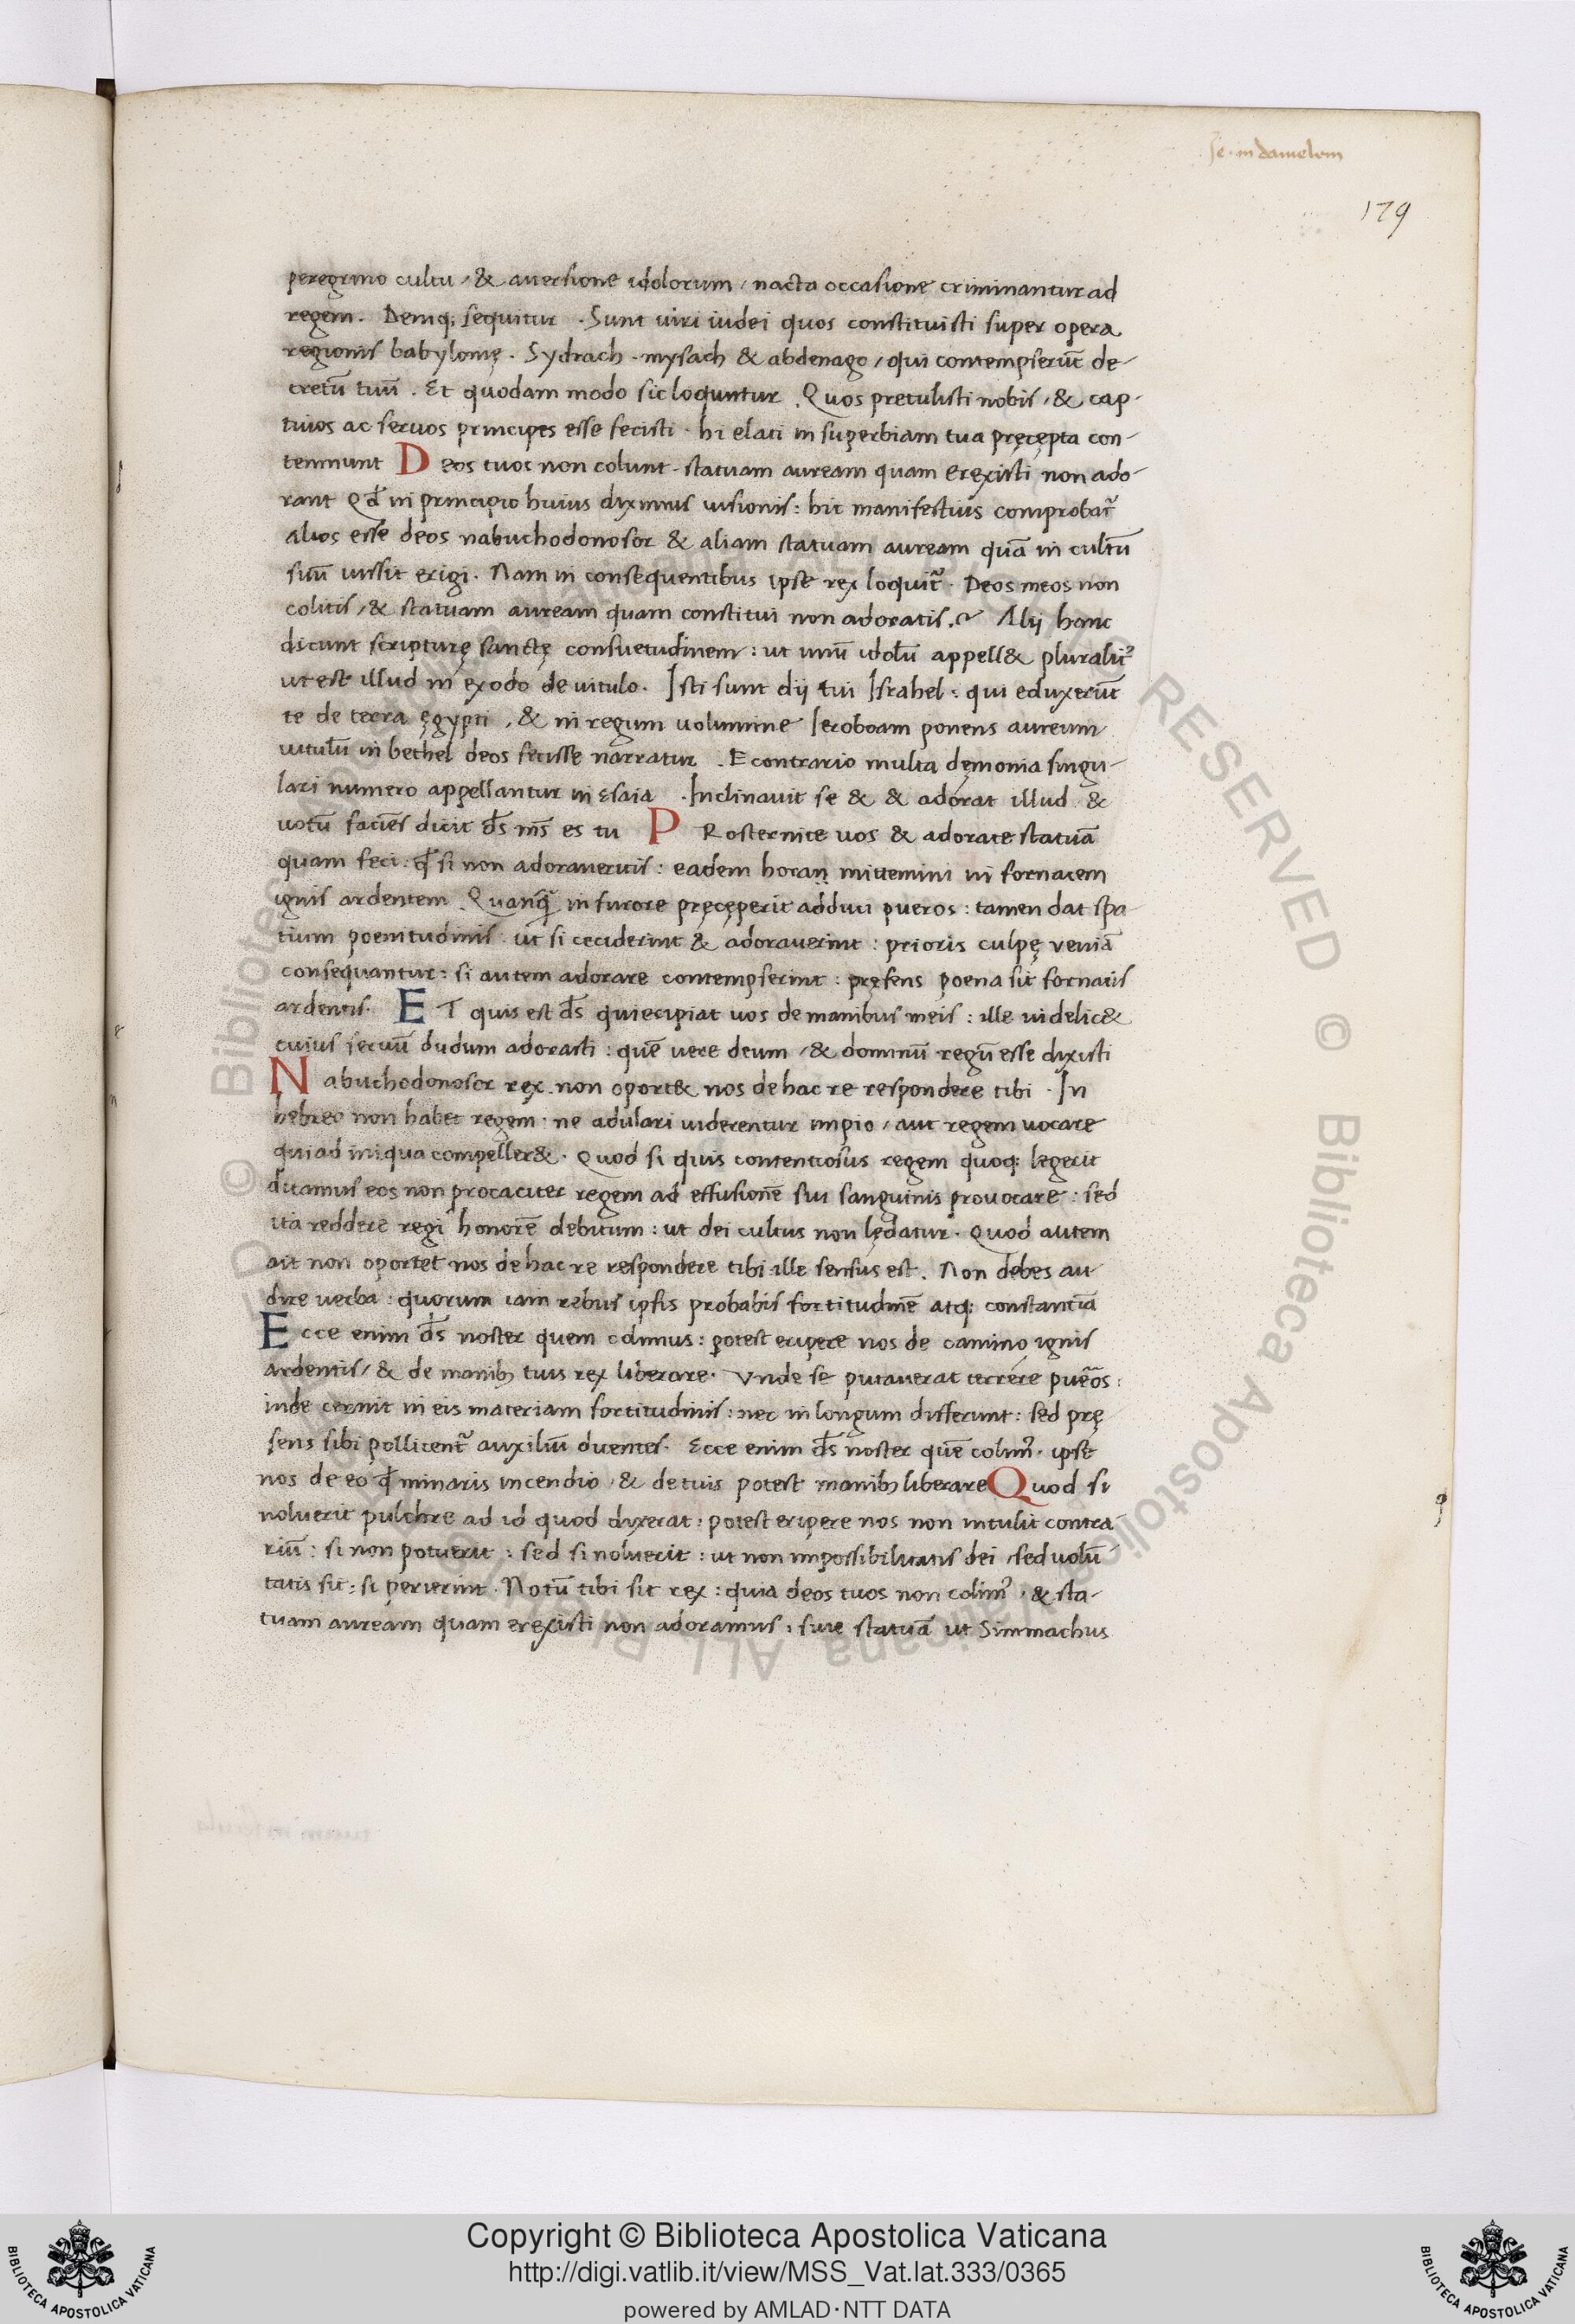 Je. in danielem
179
peregrino cultu / & auersione idolorum / nacta occasione criminantur ad
regem. Deniq; sequitur . Sunt uiri iudei quos constituisti super opera
regionis babylonię . Sydrach . mysach & abdenago / qui contempserūt de-
cretū tuū . Et quodam modo sic loquntur . Quos pretulisti nobis / & cap-
tiuos ac seruos principes esse fecisti . hi elati in superbiam tua pręcepta con-
temnunt Deos tuos non colunt . statuam auream quam erexisti non ado-
rant Qđ in principio huius diximus uisionis : hic manifestius comprobat᷑
alios esse deos nabuchodonosor & aliam statuam auream quā in cultū
suū iussit erigi . Nam in consequentibus ipse rex loquit᷑ . Deos meos non
colitis / & statuam auream quam constitui non adoratis . Alij hanc
dicunt scripturę sanctę consuetudinem : ut unū idolū appell& pluralit᷑
ut est illud in exodo de uitulo . Isti sunt dij tui Israhel : qui eduxerūt
te de terra ęgypti , & in regum uolumine Ieroboam ponens aureum
uitulū in bethel deos fecisse narratur . E contrario multa dęmonia singu-
lari numero appellantur in Esaia . Inclinauit se & & adorat illud . &
uotū faciēs dicit d̄s m̄s es tu PRosternite uos & adorate statuā
quam feci : qđ si non adoraueritis : eadem horaṃ mittemini in fornacem
ignis ardentem . Quanq̄ in furore pręceperit adduci pueros : tamen dat spa-
tium poenitudinis . ut si ceciderint & adorauerint : prioris culpę veniā
consequantur : si autem adorare contempserint : pręsens poena sit fornacis
ardentis . ET quis est d̄s qui eripiat uos de manibus meis : ille uidelic&
cuius seruū dudum adorasti : quē uere deum / & dominū regū esse dixisti
Nabuchodonosor rex . non oport& nos de hac re respondere tibi . In
hebreo non habet regem . ne adulari uiderentur impio / aut regem uocare
qui ad iniqua compeller& . Quod si quis contentiosus regem quoq; legerit
dicamus eos non procaciter regem ad effusionē sui sanguinis prouocare : sed
ita reddere regi honorē debitum : ut dei cultus non lędatur . Quod autem
ait non oportet nos de hac re respondere tibi ille sensus est . Non debes au
dire uerba : quorum iam rebus ipsis probabis fortitudinē atq; constantiā
Ecce enim d̄s noster quem colimus : potest eripere nos de camino ignis
ardentis / & de manib; tuis rex liberare . Vnde se putauerat terrere pueros :
inde cernit in eis materiam fortitudinis : nec in longum differunt : sed prę
sens sibi pollicent᷑ auxiliū dicentes . Ecce enim d̄s noster quē colim᷒ . ipse
nos de eo qđ minaris incendio / & de tuis potest manib; liberare Quod si
noluerit pulchre ad id quod dixerat : potest eripere nos non intulit contra-
riū : si non potuerit : sed si noluerit : ut non impossibilitatis dei / sed uolū
tatis sit : si perierint . Notū tibi sit rex : quia deos tuos non colim᷒ , & sta-
tuam auream quam erexisti non adoramus : siue statuā ut Simmachus
© Biblioteca Apostolica Vaticana ALL RIGHTS RESERVED © Biblioteca Apostolica Vaticana ALL RIGHTS RESERVED
BIBLIOTECA APOSTOLICA VATICANA
Copyright © Biblioteca Apostolica Vaticana
http://digi.vatlib.it/view/MSS_Vat.lat.333/0365
powered by AMLAD·NTT DATA
BIBLIOTECA APOSTOLICA VATICANA